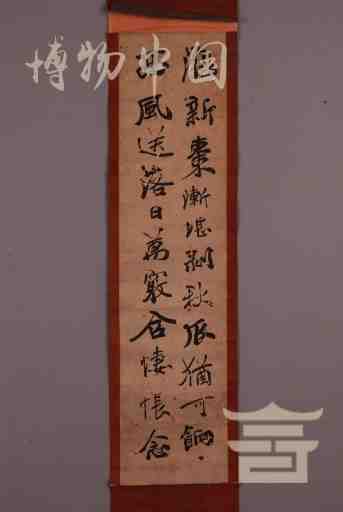 博物中国
新棗漸堪剝秋瓜猶可餉
西風送落日萬竅含悽悵念